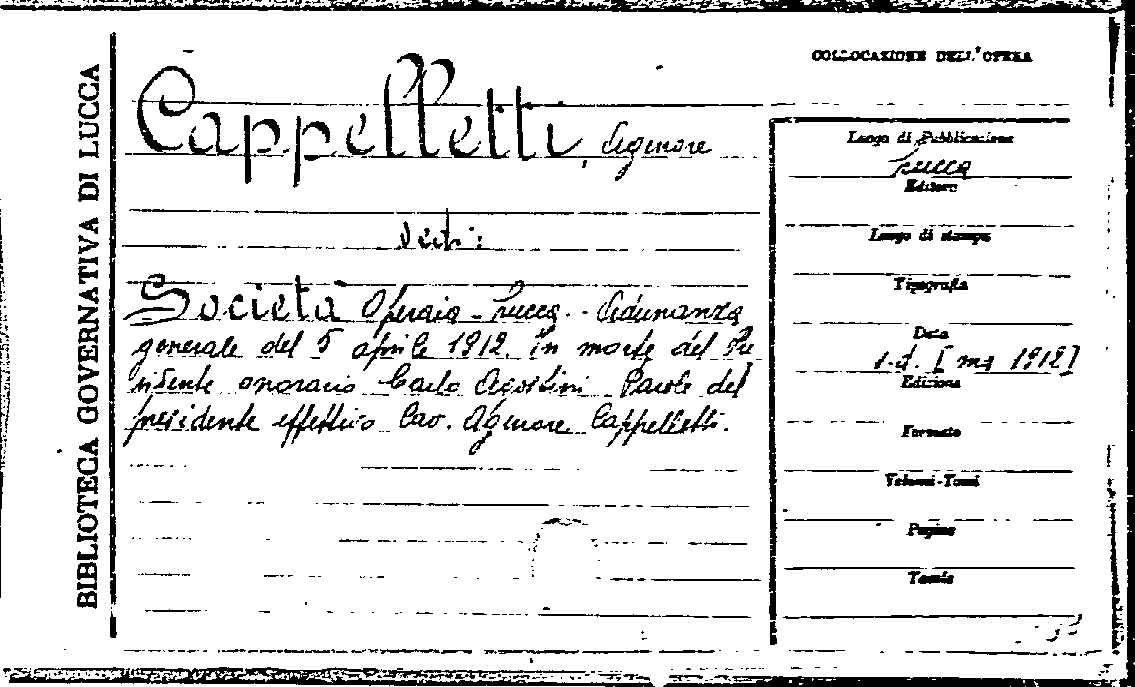 BIBLIOTECA GOVERNATIVA DI LUCCA
Cappelletti, Agenore
Vedi:
Società Operaia - Lucca - Adunanza
generale del 5 aprile 1912. In morte del Pre
sidente onorario Carlo Agostini Parole del
presidente effettivo Cav. Agenore Cappelletti.
COLLOCAZIONE DELL'OPERA
Luogo di Pubblicazione
Lucca
Editore
Luogo di stampa
Tipografia
Data
s.d. [ma 1912]
Edizione
Formato
Volumi-Tomi
Pagine
Tavole